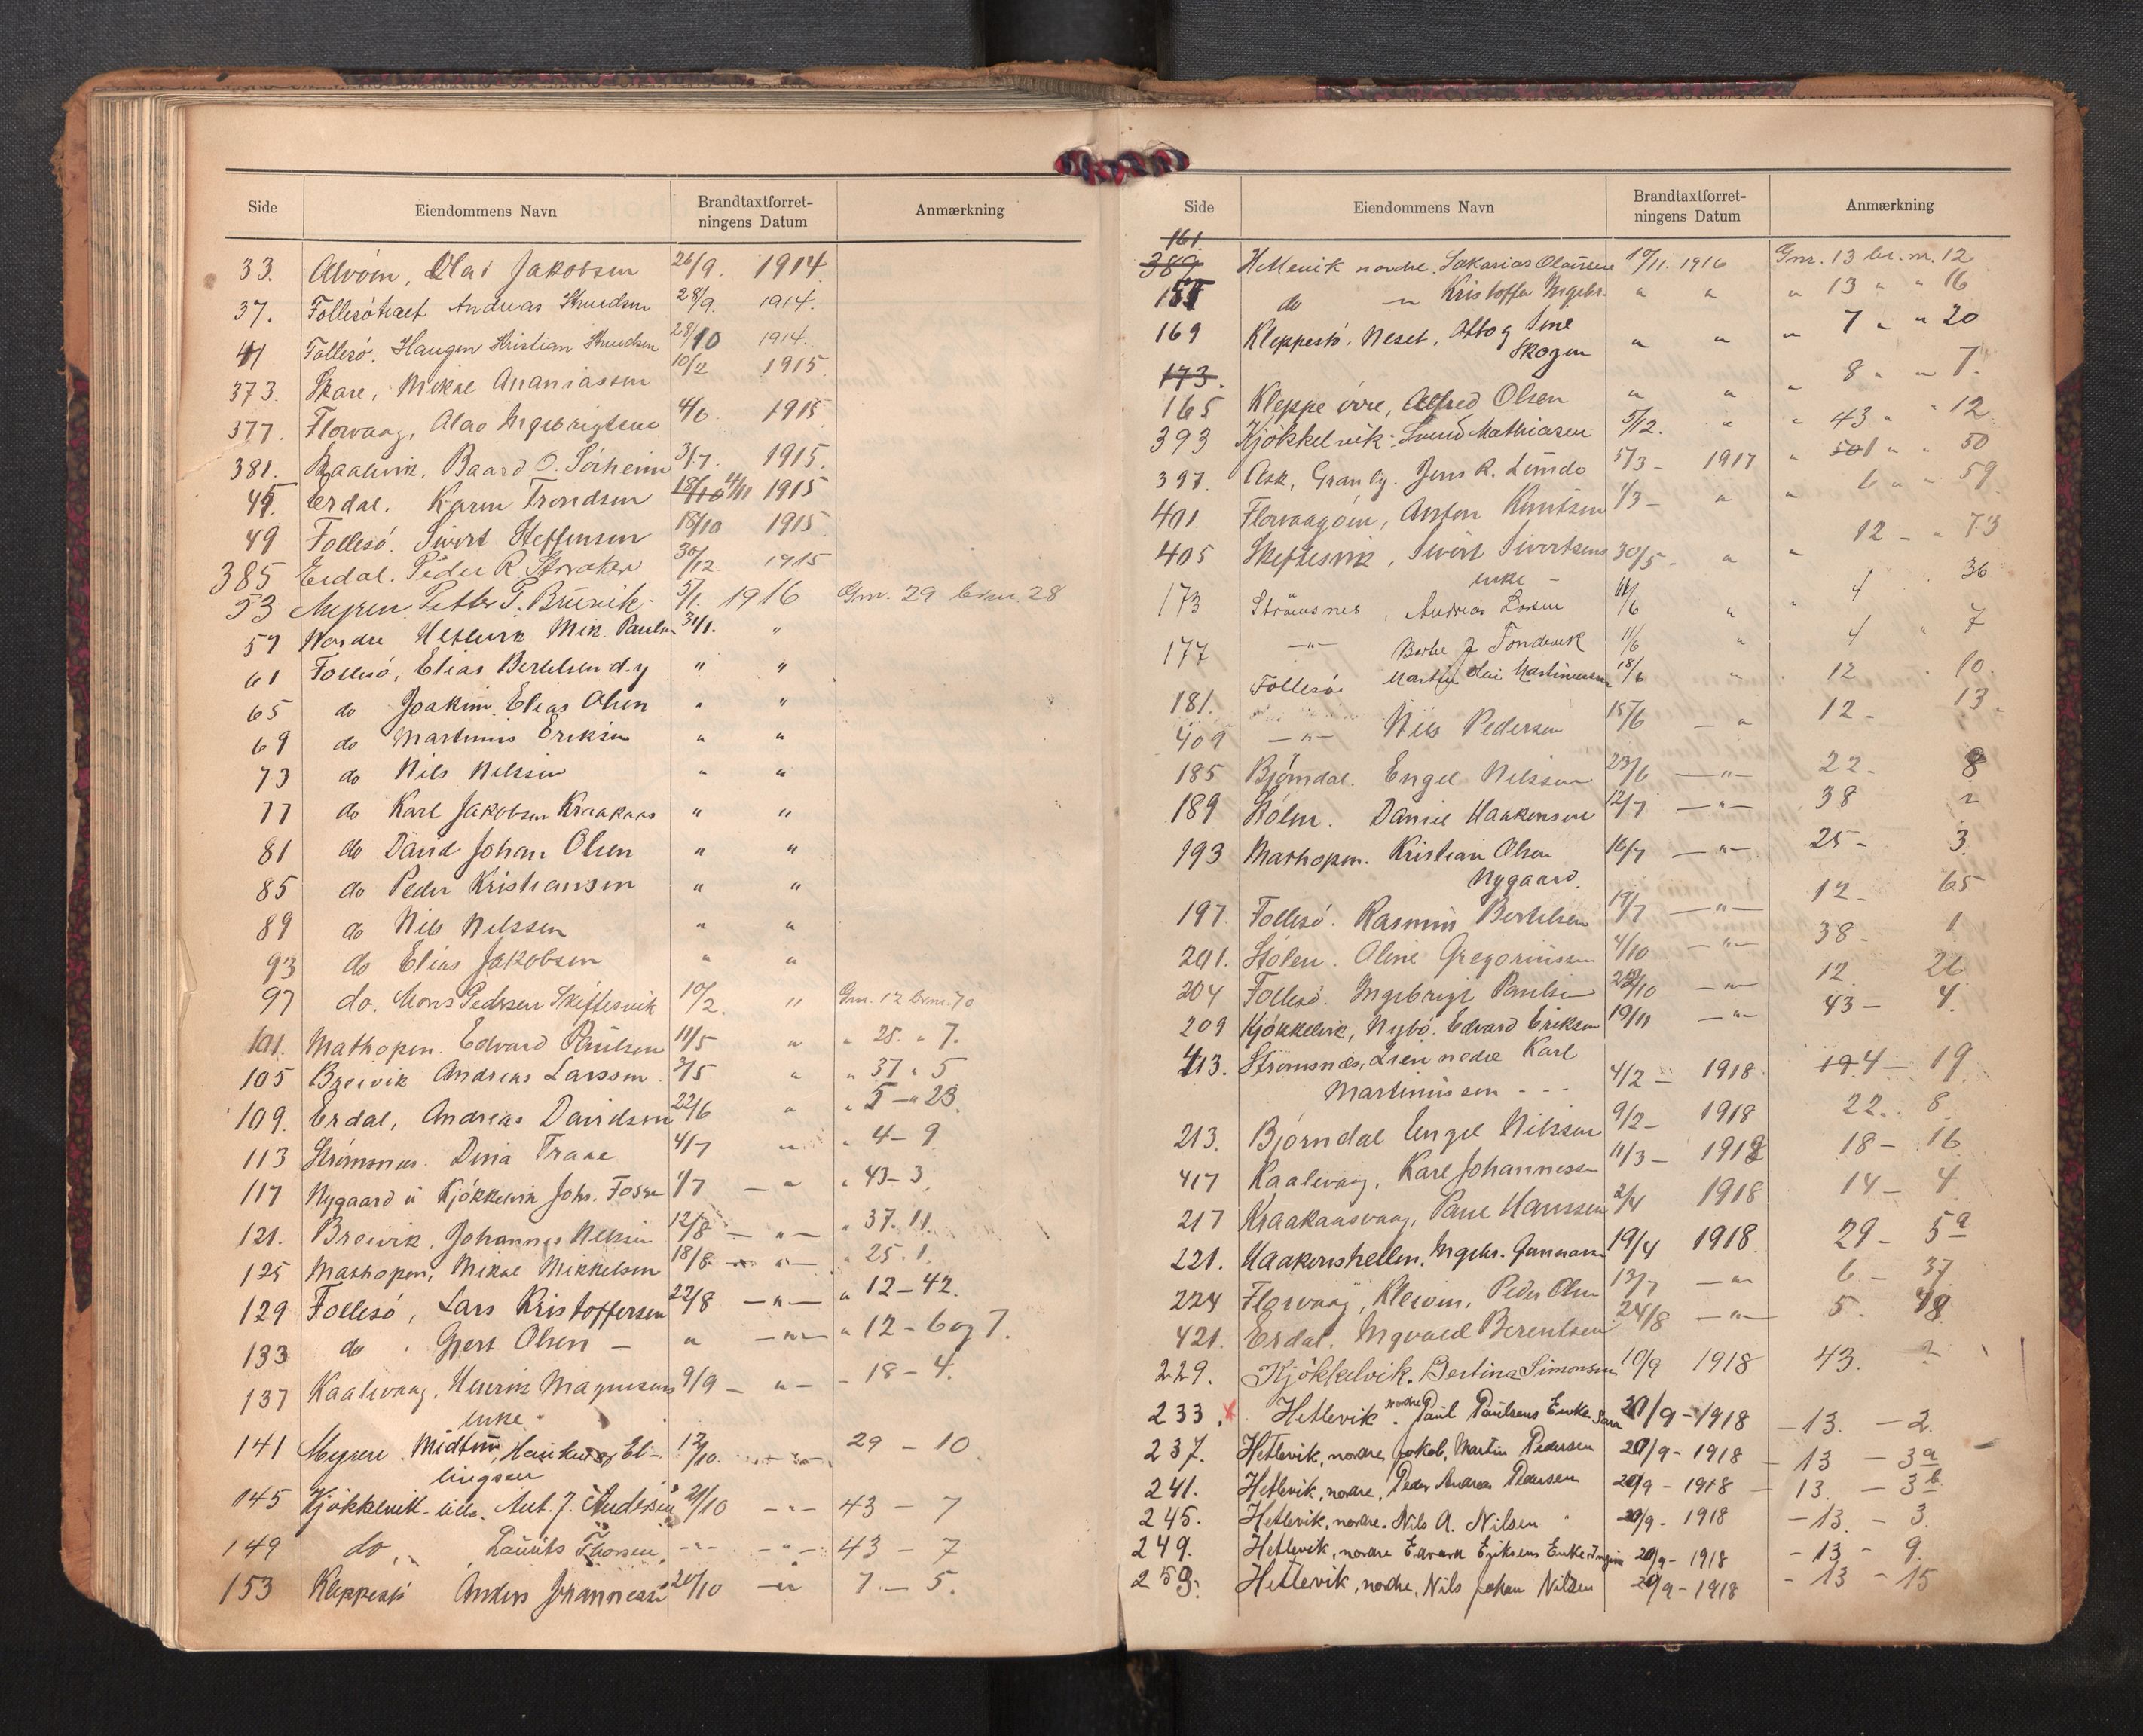 Side Eiendommens Navn Brandtaxtforret-ningens Datum Anmærkning
33. Alvøen, Olai Jakobsen 26/9. 1914
37. Follesøtræet Andreas Knudsen 28/9. 1914.
41 Follesø. Haugen Kristian Knudsen 28/10 1914.
373. Skare, Mikal Ananiassen 10/2 1915.
377. Florvaag, Olao Ingebrigtsen 4/6. 1915
381. Baard O. Sørheim 3/7. 1915.
45. Erdal. Karen Trondsen 18/10 4/11 1915
49 Follesø. Sivert Steffensen 18/10 1915
385 Erdal. Peder R 30/12. 1915
53 Myren Petter P. Brevik 5/1. 1916 Gm. 29 brnr. 28
57 Nordre Hetlevik Mik. Paulsen 31/1. "
61 Follesø, Elias Bertelsen d.y " "
65 do Joakim Elias Olsen " "
69 do Martinus Eriksen " "
73 do Nils Nilssen " "
77 do Karl Jakobsen Kraakaas " "
81 do David Johan Olsen " "
85 do Peder Kristiansen " "
89 do Nils Nilssen " "
93 do Elias Jakobsen " "
97 do. Mons Pedersen Skiftesvik 10/2. " Gm. 12 brnr. 70
101. Mathopen. Edvard Paulsen 11/5 " " 25. " 7.
105 Breivik Andreas Larssen 3/5 " " 37 " 5
109. Erdal, Andreas Davidsen 22/6 " " 5 — " 23.
113 Strømsnes. Dina Trane 4/7 " " 4 – 9
117 Nygaard u Kjøkkelvik Johs. Fosse 4/7 — " " 43 – 3.
121. Breivik, Johannes Nilssen 12/8 — " — " 37. 11.
125 Mathopen, Mikal Mikkelsen 18/8. — " — " 25. 1.
129 Follesø, Lars Kristoffersen 22/8 — " — " 12 – 42.
133 do. Gjert Olsen — " — " — " 12 – 6 og 7.
137 Kaalevaag, Henrik Magnusens 9/9 — " — – 18 – 4.
enke
141 Myrere. Midtun, Haukur El- 12/10. 29 – 10.
lingsen
145 Kjøkkelvik ndr. Ant. J. Andersen 21/10 – " – 43 – 7
149 do, Lauritz Thorsen, – " – – " – 43 – 7
153 Kleppestø Anders Johannessen 20/10 — " 7 – 5.
Side Eiendommens Navn Brandtaxtforret-ningens Datum Anmærkning
161.
389 Hetlevik nordre, Sakarias Olaussen 10/11. 1916 Gnr. 13 br. nr. 12
157 do — " Kristoffer Ingebr. " " " 13 " " 16
169 Kleppestø. Neset. Otto g Sine " " " 7 " " 20
Skogen
173.
165 Kleppe øvre, Alfred Olsen " " " 8 " " 7.
393 Kjøkkelvik. Svend Mathiasen 5/12. " " 43 " " 12
397. Ask, Granly. Jens R. Lunde 5/3 – 1917 " 501 " " 50
401. Florvaagøen, Anton Knutsen 1/3 – " " 6 " " 59
405 Skiftesvik, Sivert Sivertsens 30/5 – " " 12 – " 73
enke –
173 Strømsnes, Andreas Larsen 11/6 " " 4 " 36
177 — " — Berte J Tondevik 11/6 " 4 " 7
181. Follesø Martin Olai Martinussen 18/6 " 12 10.
409 — " — Nils Pedersen 15/6 — " 12 – 13.
185 Bjørndal. Engel Nilssen 23/6 — " — 22 – 8
189 Stølen. Daniel Haakonsen 12/7 — " — 38 2
193 Mathopen. Kristian Olsen 16/7 — " — 25 – 3.
Nygaard.
197. Follesø. Rasmus Bertelsen 19/7 — " — 12 – 65
201. Stølen. Aline Gregoriussen 4/10 — " — 38 – 1
204 Follesø. Ingebrigt Paulsen 22/10 — " — 12. 26
209 Kjøkkelvik, Nybø. Edvard Eriksen 19/11 — " — 43 – 4.
413. Strømsnæs, Lien nedre Karl
Martinussen - - - 4/2 – 1918. 194 – 19
213. Bjørndal Engel Nilssen 9/2 – 1918 22. 8.
417 Kaalevaag, Karl Johannessen 11/3 – 1918 18 – 16
217 Kraakaasvaag, Paul Hanssen 2/4 1918 14 – 4
221. Haakonshellen, Ingebr. Gunnarsen 19/4 1918. 29 – 5a
224 Florvaag, Kleiven, Peder Olsen 13/7 — " 6 – 37
421. Erdal. Ingvald Berentsen 24/8 — " — 5. 48.
229. Kjøkkelvik. Bertina Simonsen 10/9 1918 43. 2
233. x Hetlevik nordre. Paul Paulsens Enke Sara 20/9 – 1918 – 13. – 2.
237. Hetlevik, nordre, Jakob, Martin Pedersen 20/9 – 1918 – 13 – 3a
241. Hetlevik, nordre, Peder Andreas Pedersen 20/9 – 1918 – 13. – 3b
245. Hetlevik, nordre. Nils A. Nilsen 20/9 – 1918 – 13. – 3.
249. Hetlevik, nordre Edvard Eriksens Enke 20/9 – 1918 – 13 – 9.
253. Hetlevik, nordre, Nils Johan Nilsen 20/9 – 1918 – 13 – 15